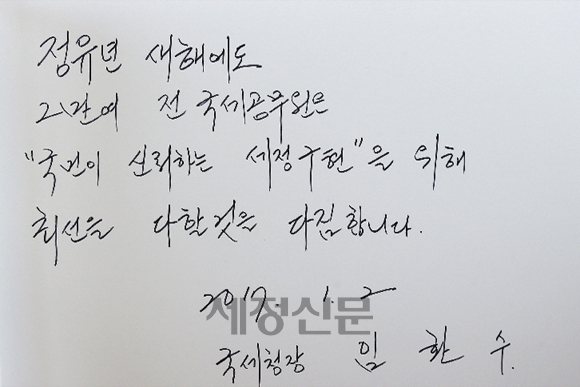 정유년 새해에도
2만여 전 국세공무원은
"국민이 신뢰하는 세정구현"을 위해
최선을 다할것을 다짐합니다.
2017. 1. 2
세정신문
국세청장 임 환 수.